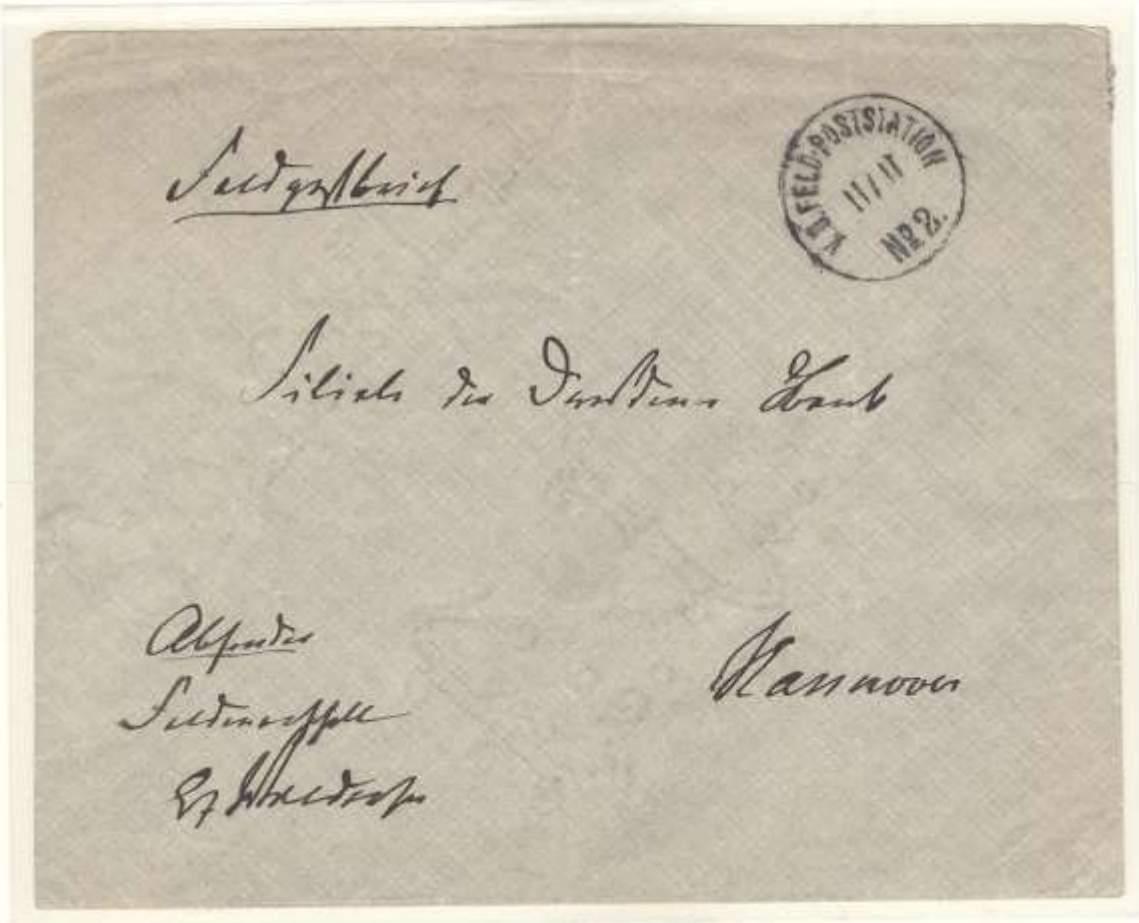 Feldpostbrief
K.D.FELD-POSTSTATION
11/11
No 2.
Filiale der Dresdener Bank
Absender
Feldmarschall
Gf Waldersee
Hannover